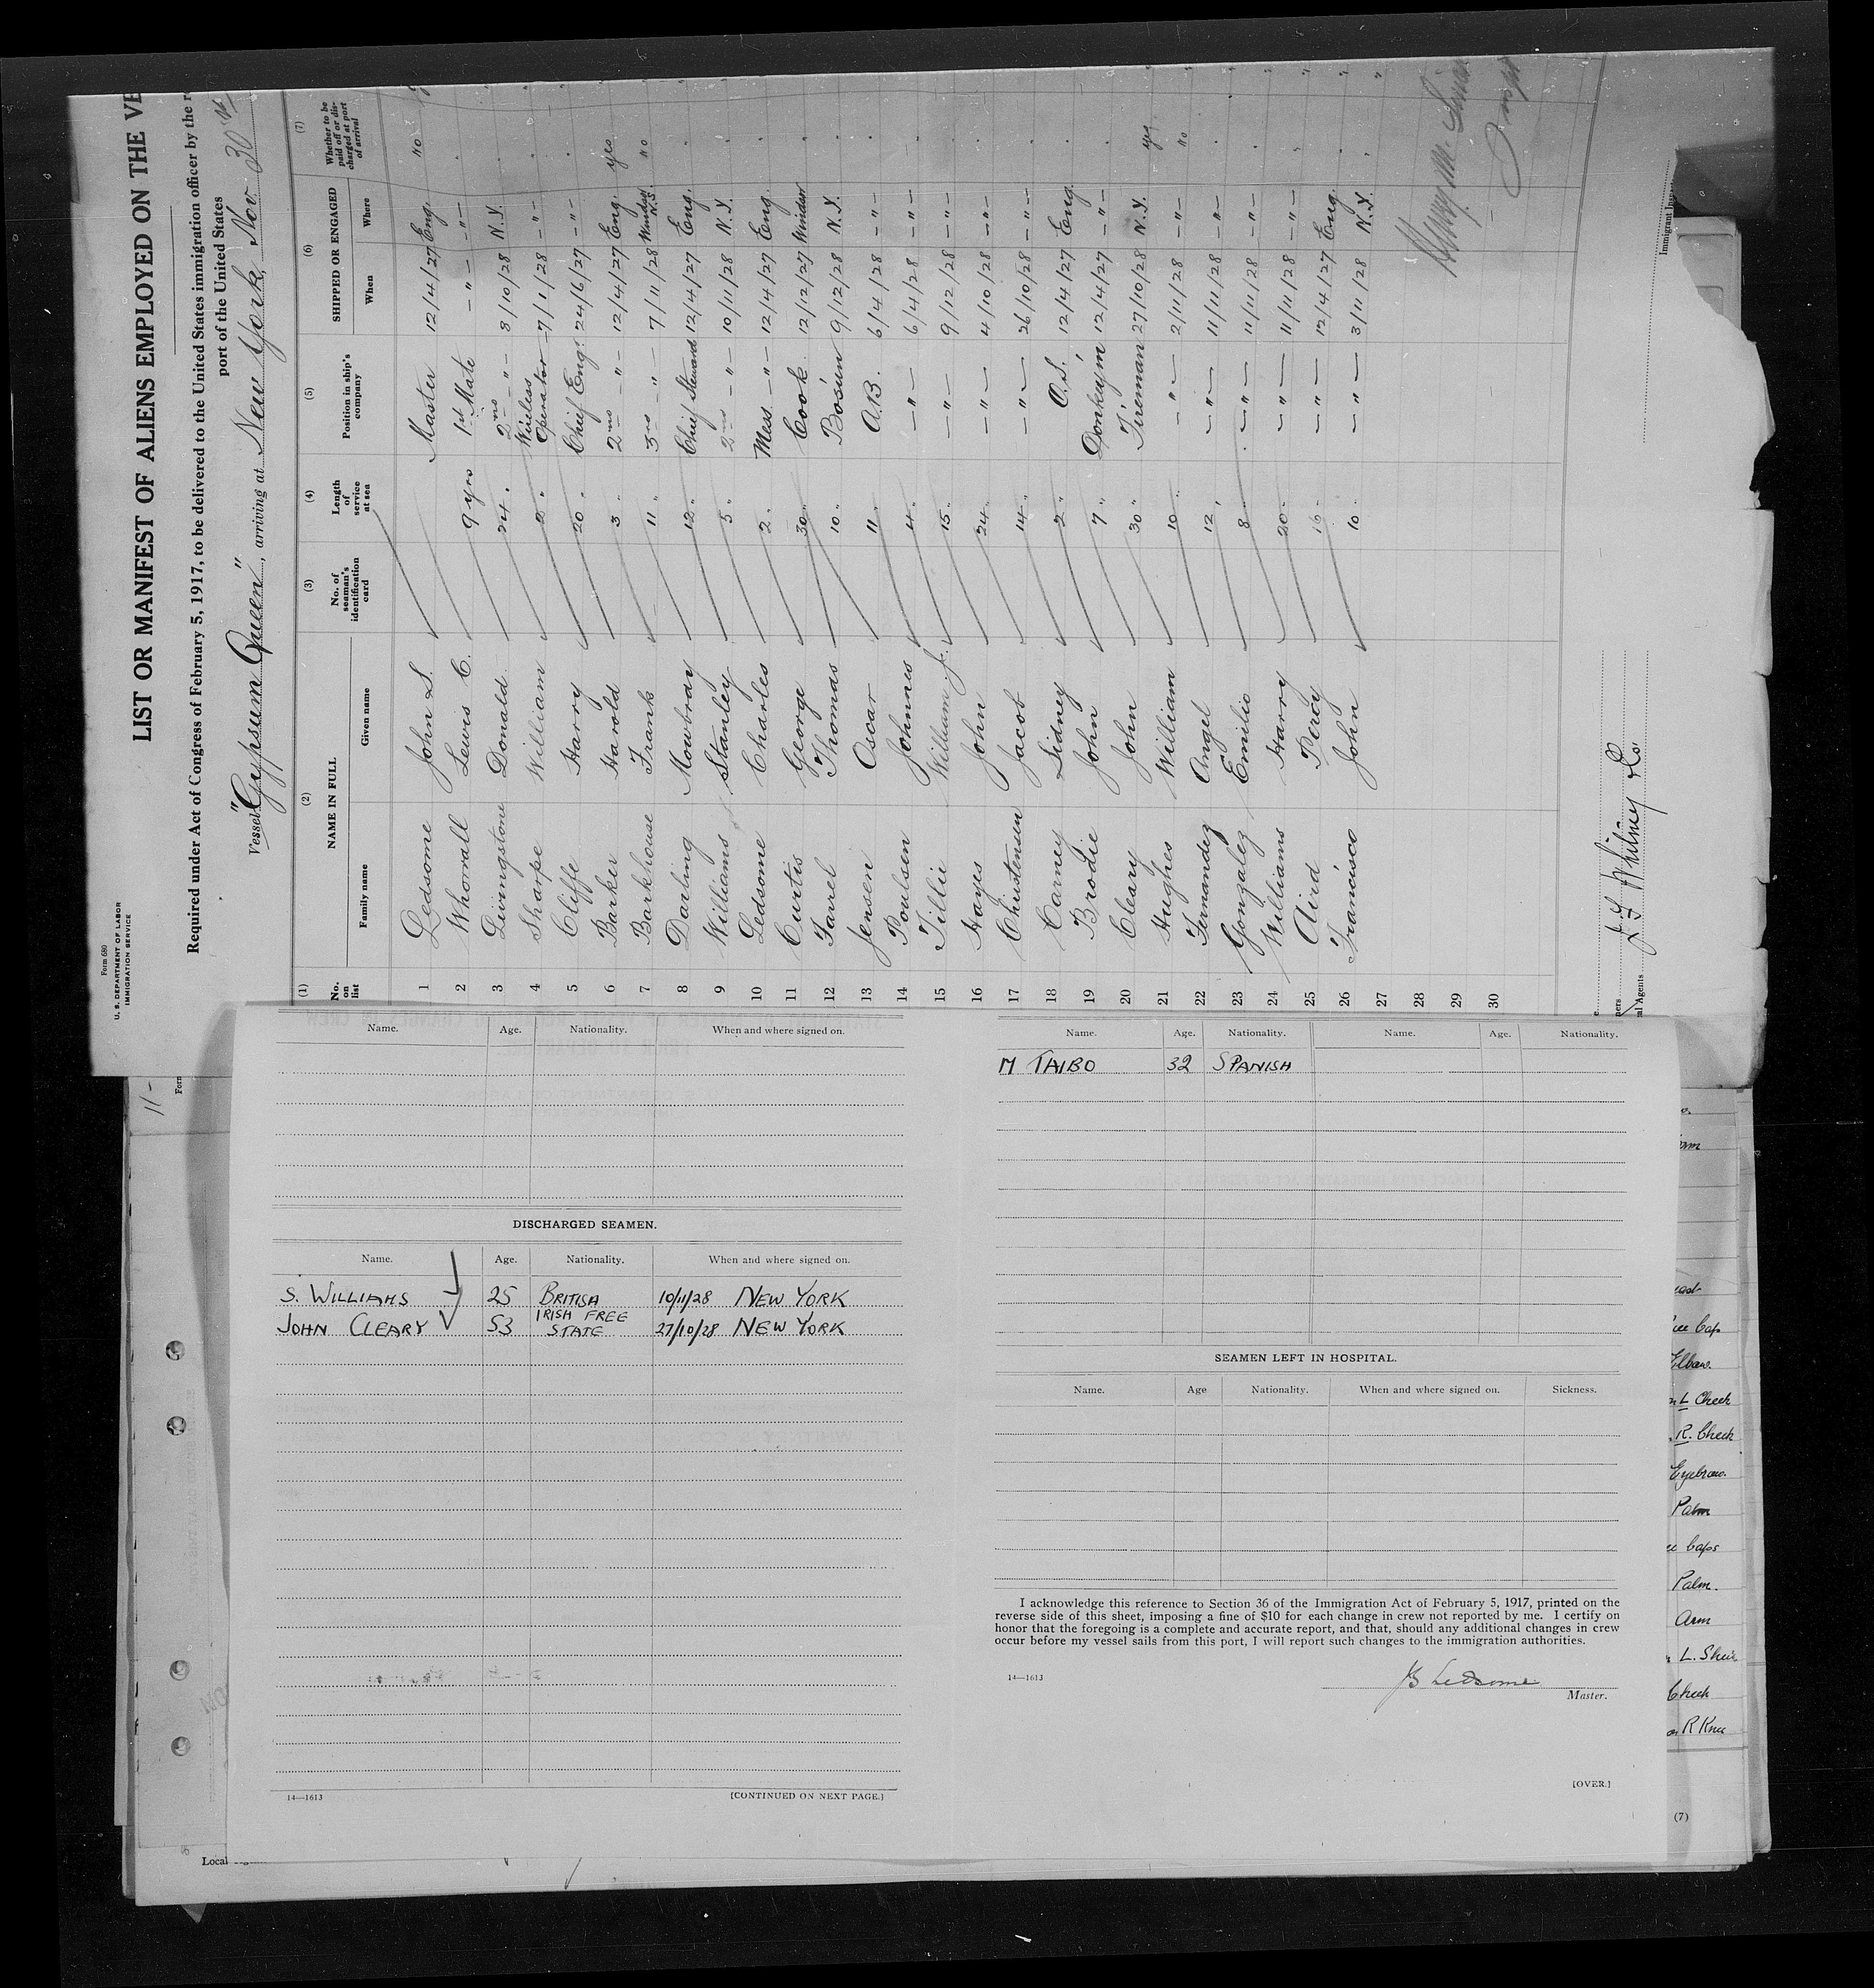 Form 680
U. S. DEPARTMENT OF LABOR
IMMIGRATION SERVICE
LIST OR MANIFEST OF ALIENS EMPLOYED ON THE VE
Required under Act of Congress of February 5, 1917, to be delivered to the United States immigration officer by the r
port of the United States
Vessel "Gypsum Queen", arriving at New York, Nov. 30th
(1) (2) (3) (4) (5) (6) (7)
No. on list NAME IN FULL No. of seaman's identification card Length of service at sea Position in ship's company SHIPPED OR ENGAGED Whether to be paid off or discharged at port of arrival
Family name Given name When Where
1 Ledsome John S. Master 12/4/27 Eng. no
2 Whorrall Lewis C. 9 yrs 1st Mate - " - - " -
3 Livingstone Donald 24 " 2nd - " - 8/10/28 N.Y.
4 Sharpe William 2 " Wireless Operator 7/1/28 - " -
5 Cliffe Harry 20 " Chief Eng. 24/6/27 - " -
6 Barker Harold 3 " 2nd - " - 12/4/27 Eng. yes
7 Barkhouse Frank 11 " 3rd - " - 7/11/28 Windsor N.S. no
8 Darling Mowbray 12 " Chief Steward 12/4/27 Eng.
9 Williams Stanley 5 " 2nd - " - 10/11/28 N.Y.
10 Ledsome Charles 2 " Mess - " - 12/4/27 Eng.
11 Curtis George 30 " Cook 12/12/27 Windsor
12 Farrel Thomas 10 " Bosun 9/12/28 N.Y.
13 Jensen Oscar 11 " A.B. 6/4/28 - " -
14 Poulsen Johnnes 4 " - " - 6/4/28 - " -
15 Tillie William J. 15 " - " - 9/12/28 - " -
16 Hayes John 24 " - " - 4/10/28 - " -
17 Christensen Jacob 14 " - " - 26/10/28 - " -
18 Carney Sidney 2 " O.S. 12/4/27 Eng.
19 Brodie John 7 " Donkeym'n 12/4/27 - " -
20 Cleary John 30 " Fireman 27/10/28 N.Y. yes
21 Hughes William 10 " - " - 2/11/28 - " - no
22 Fernandez Angel 12 " - " - 11/11/28 - " -
23 Gonzalez Emilio 8 " - " - 11/11/28 - " -
24 Williams Harry 20 " - " - 11/11/28 - " -
25 Aird Percy 16 " - " - 12/4/27 Eng.
26 Francisco John 10 " - " - 3/11/28 N.Y.
27
28
29
30
ners
al Agents J F Whitney Co.
Immigrant Ins
Name. Age. Nationality. When and where signed on.
DISCHARGED SEAMEN.
Name. Age. Nationality. When and where signed on.
S. WILLIAMS 25 BRITISH 10/11/28 NEW YORK
JOHN CLEARY 53 IRISH FREE STATE 27/10/28 NEW YORK
14—1613 [CONTINUED ON NEXT PAGE.]
Name. Age. Nationality. Name. Age. Nationality.
M TAIBO 32 SPANISH
SEAMEN LEFT IN HOSPITAL.
Name. Age Nationality. When and where signed on. Sickness.
I acknowledge this reference to Section 36 of the Immigration Act of February 5, 1917, printed on the
reverse side of this sheet, imposing a fine of $10 for each change in crew not reported by me. I certify on
honor that the foregoing is a complete and accurate report, and that, should any additional changes in crew
occur before my vessel sails from this port, I will report such changes to the immigration authorities.
14—1613
JS Ledsome
Master.
[OVER.]
Elbow.
L Cheek
R. Cheek
Eyebrow.
Palm
Caps
Palm.
Arm
Cheek
R Knee
(7)
Local